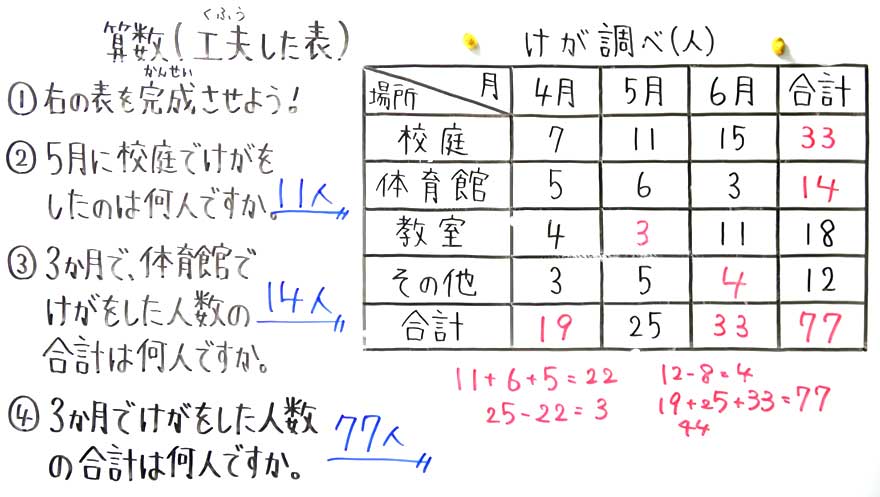 くふう
算数(工夫した表)
かんせい
①右の表を完成させよう!
②5月に校庭でけがを
したのは何人ですか。11人
③3か月で、体育館で
けがをした人数の 14人
合計は何人ですか。
④3か月でけがをした人数 77人
の合計は何人ですか。
けが調べ(人)
場所 月 4月 5月 6月 合計
校庭 7 11 15 33
体育館 5 6 3 14
教室 4 3 11 18
その他 3 5 4 12
合計 19 25 33 77
11+6+5=22
25-22=3
12-8=4
19+25+33=77
44